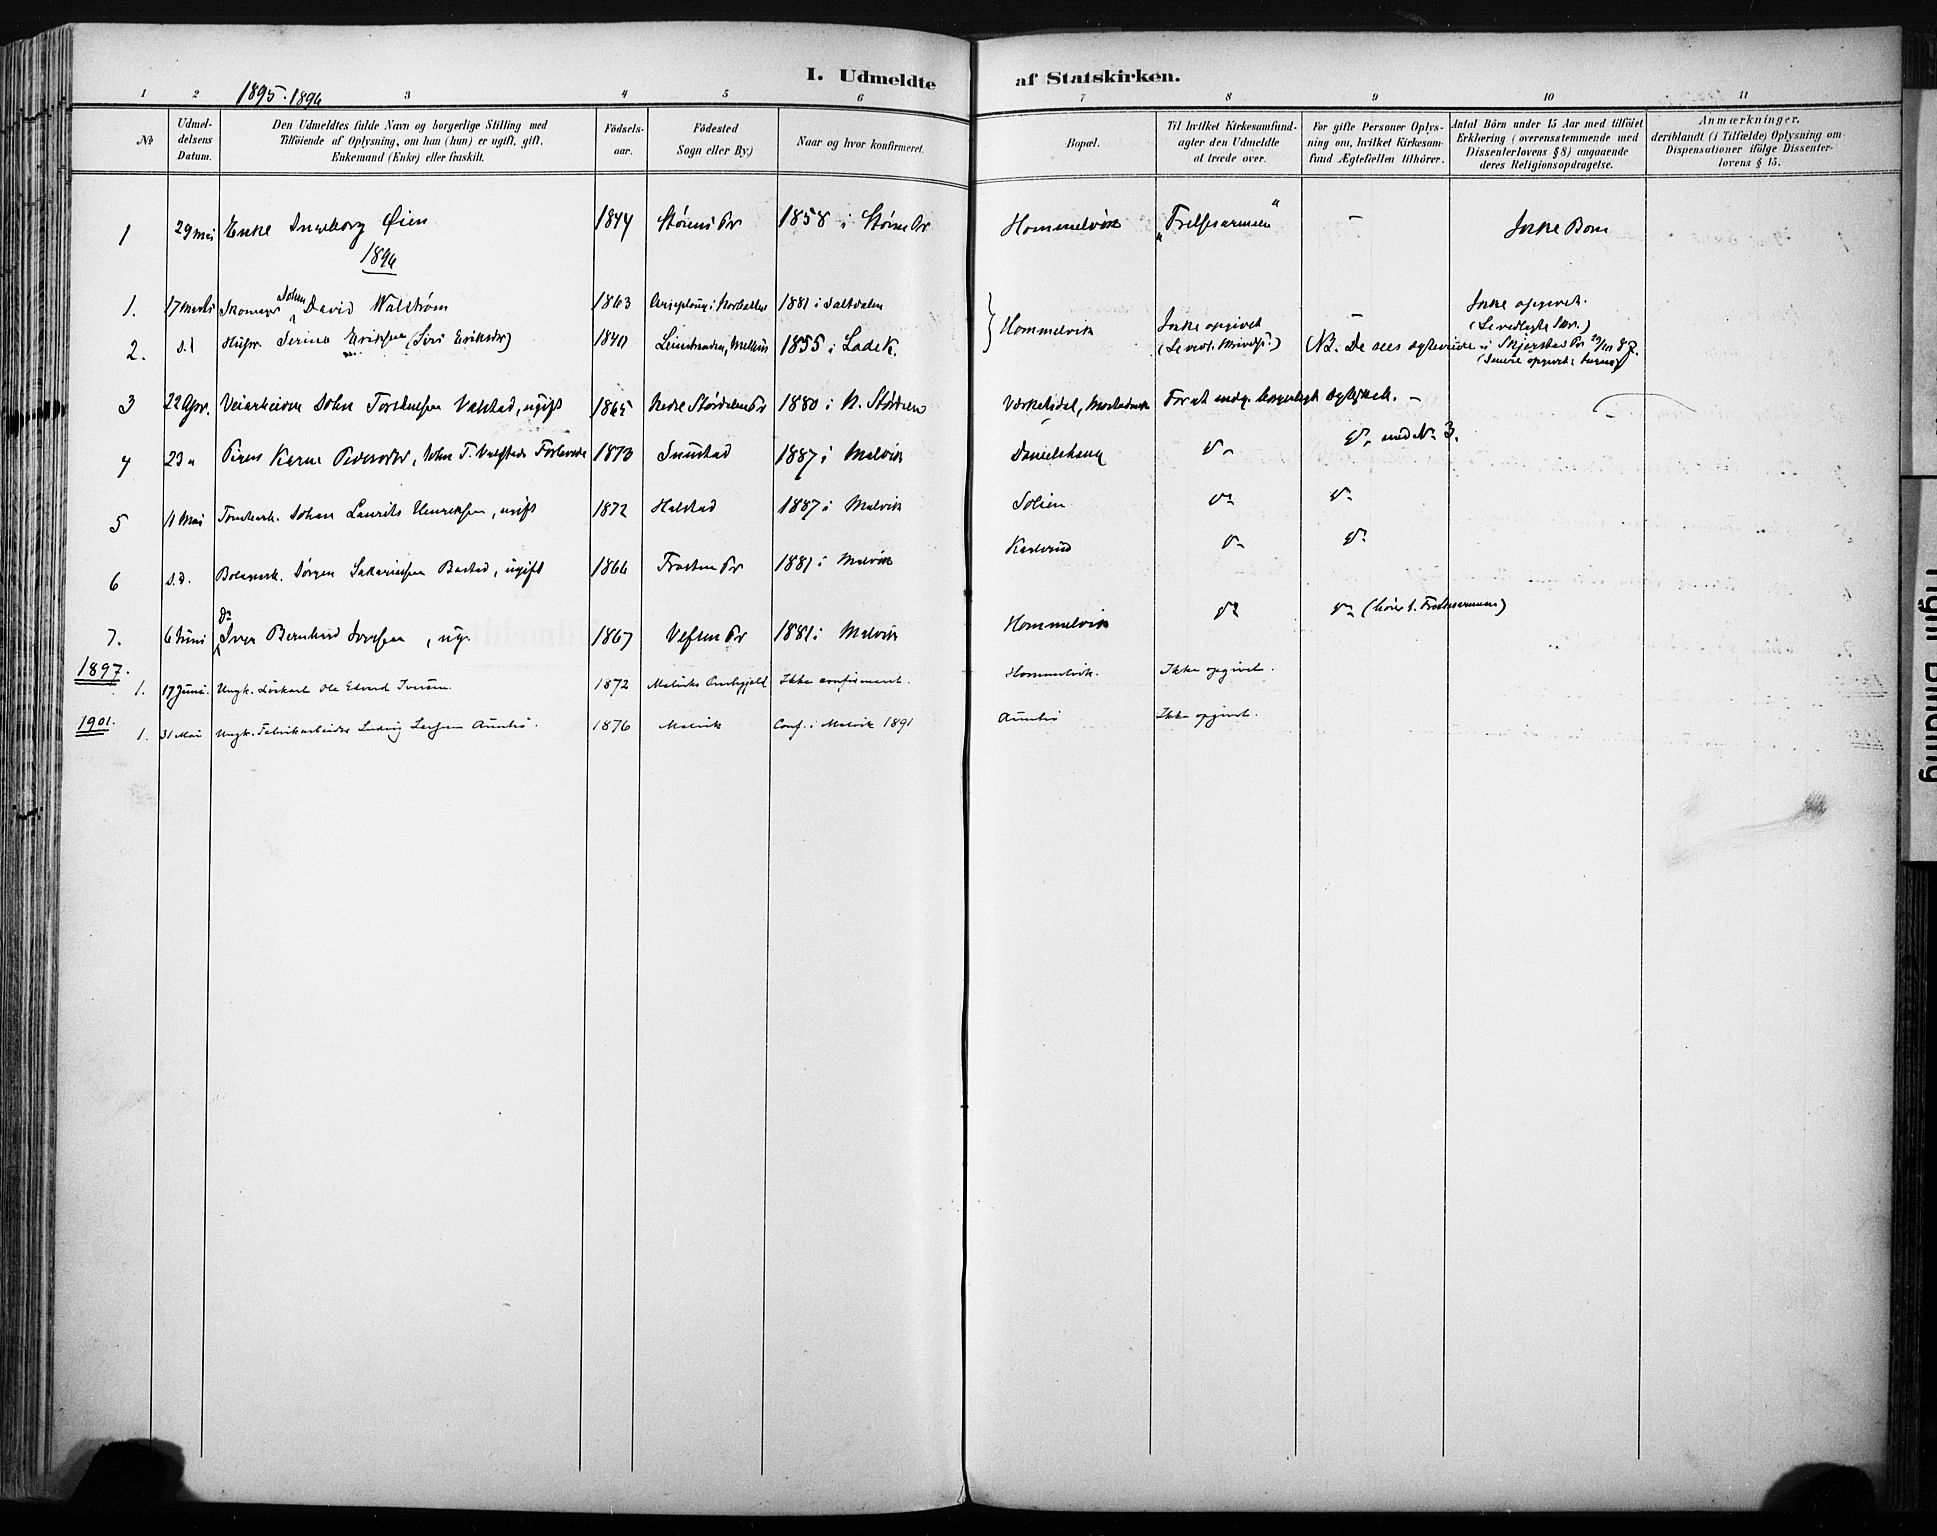 I. Udmeldte af Statskirken.
1895. 1896
1 2 3 4 5 6 7 8 9 10 11
No
Udmeldelsens Datum.
Den Udmeldtes fulde Navn og borgerlige Stilling med
Tilföiende af Oplysning, om han (hun) er ugift, gift,
Enkemand (Enke) eller fraskilt.
Födselsaar.
Födested
Sogn eller By.)
Naar og hvor konfirmeret.
Bopæl.
Til hvilket Kirkesamfund-
agter den Udmeldte
at træde over.
For gifte Personer Oplys-
ning om, hvilket Kirkesam-
fund Ægtefællen tilhörer.
Antal Börn under 15 Aar med tilföiet
Erklæring (overensstemmende med
Dissenterlovens § 8) angaaende
deres Religionsopdragelse.
Anmærkninger,
deriblandt (i Tilfælde) Oplysning om
Dispensationer ifölge Dissenter-
lovens § 15.
1 29 mai Enke Ingeborg Øien 1844 Størens Pr 1858 i Støren Pr Hommelvik "Frelsesarmeen" - Ikke Børn
1896
1. 17 Marts Skomager Johan David Walstrøm 1863 1881 i Saltdalen Hommelvik Ikke opgivet - Ikke opgivet.
2. s.d. Hustr. Serine Eriksen (Siri Eriksdr) 1840 Leinstranden, Melhus 1855 i Lade K. (Se vedl. Skrivelse.) (NB. De ere ægteviede i Skjerstad Pr
3 22 Apr. Veiarbeider John Valstad, ugift 1865 Nedre Størdalens Pr 1880 i N. Størdalen For at indg. borgerligt Ægteskab. -
4 23 " Pigen Karen Pedersdtr, John T. Valstads Forlovede 1873 1887 i Malvik Danielshaug do do med No 3.
5 11 Mai Tomtearb. Johan Laurits Henriksen, ugift 1872 Halstad 1887 i Malvik Solien do do
6 s.d. Jørgen Sakariassen Bastad, ugift 1866 Frosten Pr 1881 i Malvik Karlsrud do do
7. 6 Juni do Bernhard ug. 1867 Vefsen Pr 1881 i Malvik Hommelvik do do (hører t. Frelsesarmeen)
1897.
1. 17 Juni. Ungk. Løskarl Ole Edvard Iversen. 1872 Malviks Præstegjeld Ikke confirmeret. Hommelvik. Ikke opgivet.
1901.
1. 31 Mai Ungk. Fabrikarbeider Ludvig Larsen 1876 Malvik Conf. i Malvik 1891 Ikke opgivet.